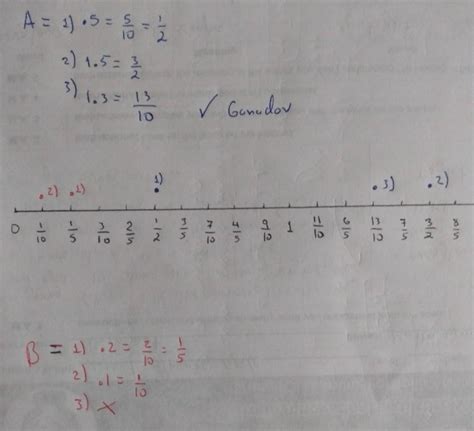 A = 1) .5 = 5/10 = 1/2
2) 1.5 = 3/2
3) 1.3 = 13/10 ✓ Ganador
2) 1) 1) 3) 2)
0 1/10 1/5 3/10 2/5 1/2 3/5 7/10 4/5 9/10 1 11/10 6/5 13/10 7/5 3/2 8/5
B = 1) .2 = 2/10 = 1/5
2) .1 = 1/10
3) ×